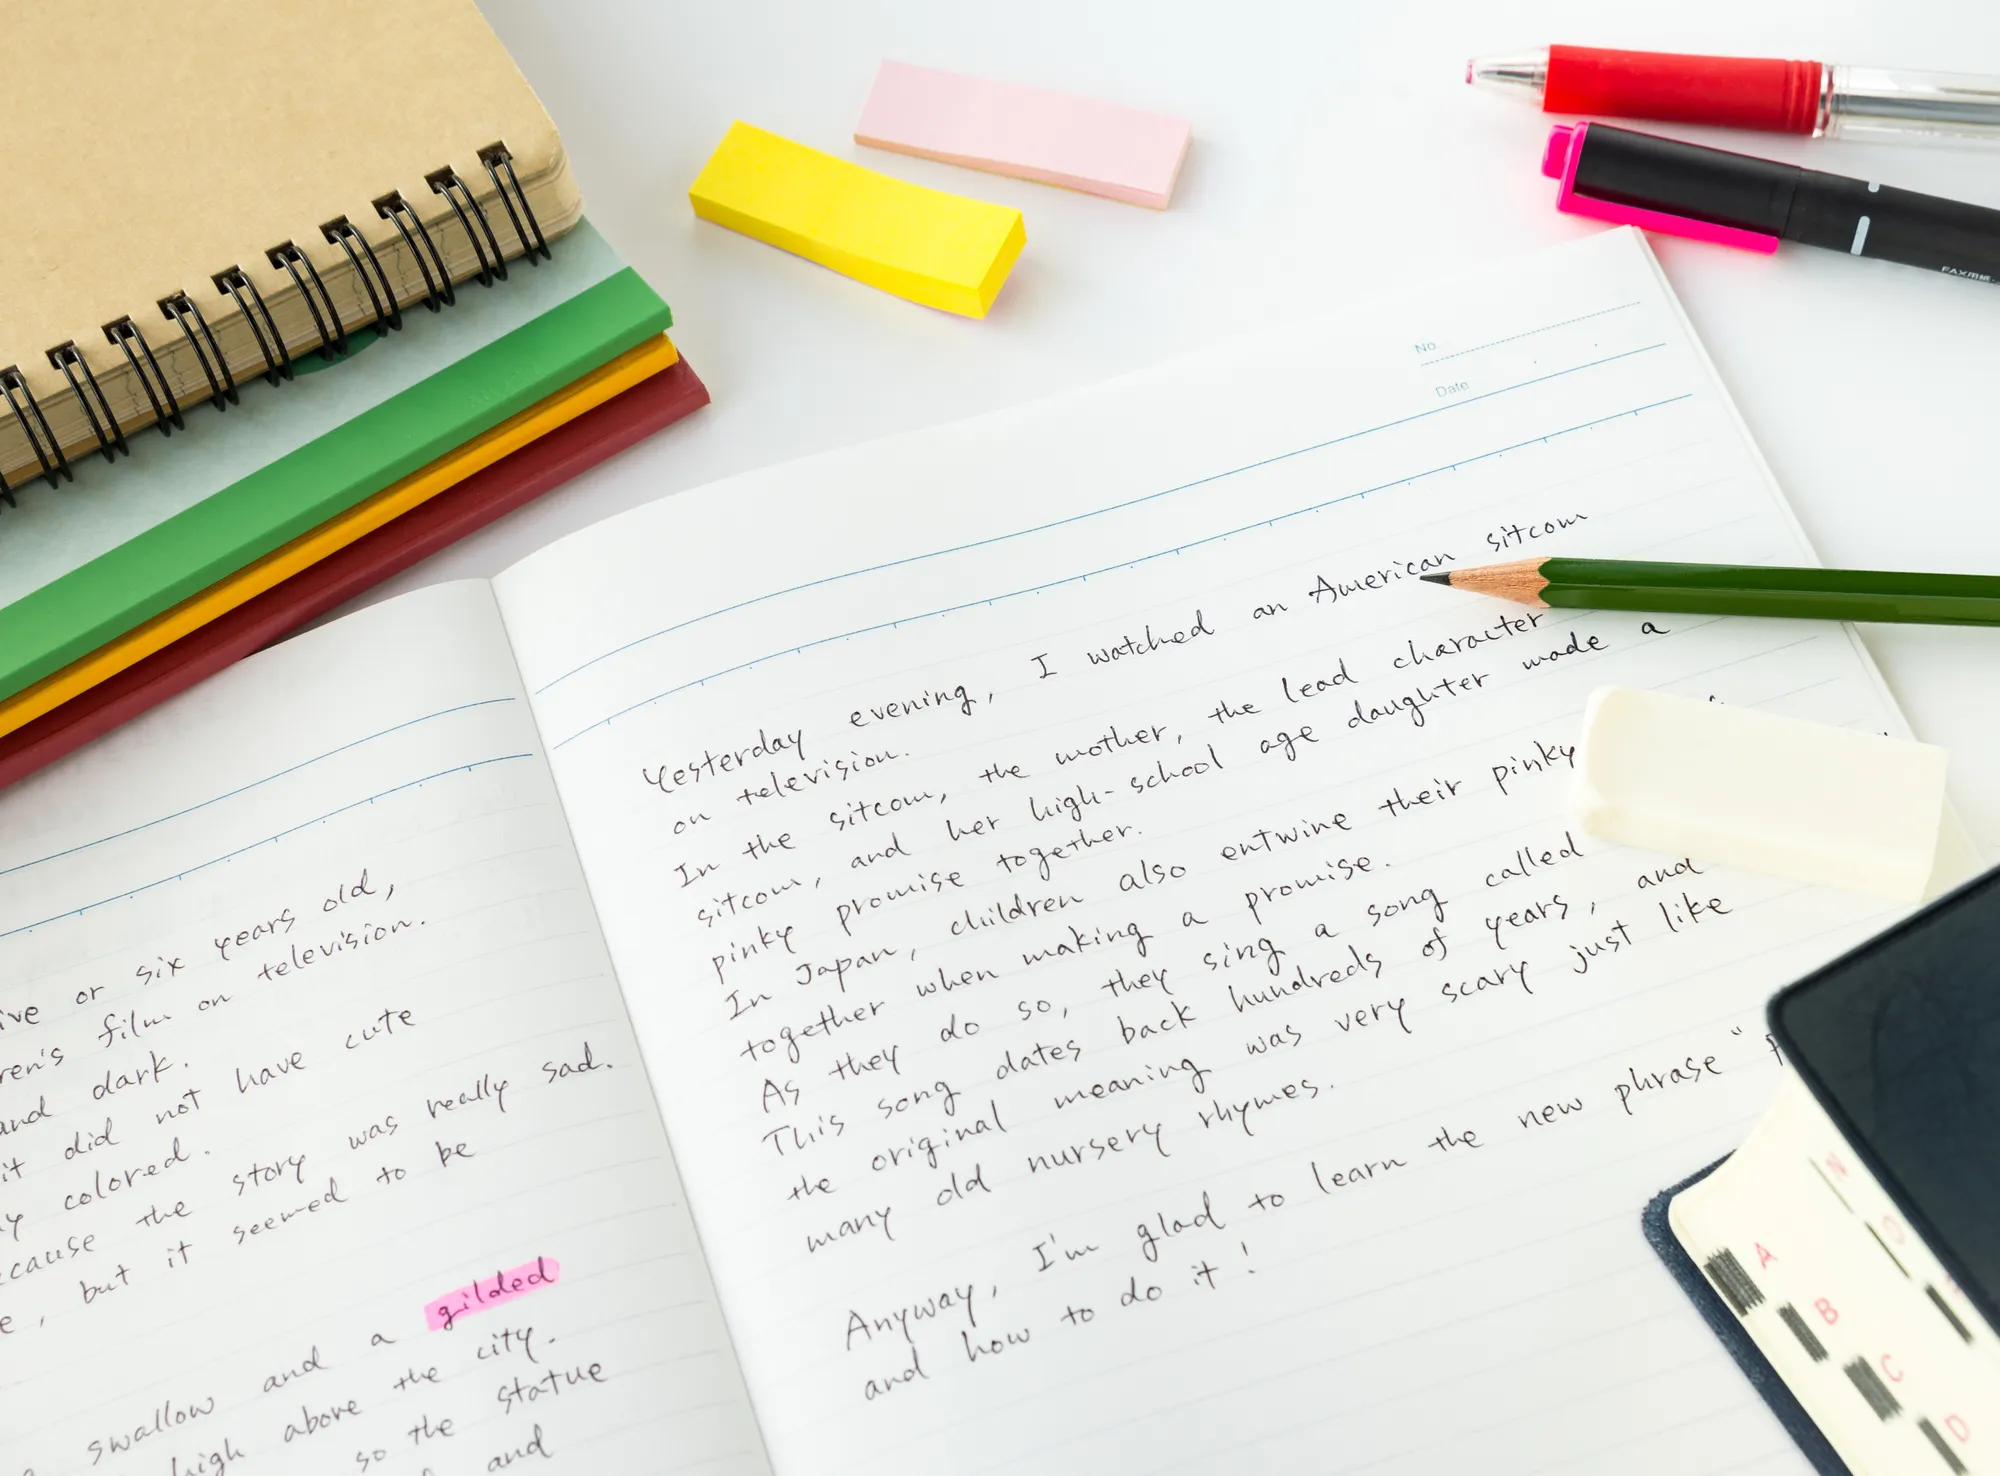 FAX用紙
No.
Date
Yesterday evening, I watched an American sitcom
on television.
In the sitcom, the mother, the lead character
sitcom, and her high-school age daughter made a
pinky promise together.
In Japan, children also entwine their pinky
together when making a promise.
As they do so, they sing a song called
This song dates back hundreds of years, and
the original meaning was very scary just like
many old nursery rhymes.
Anyway, I'm glad to learn the new phrase "
and how to do it!
or six years old,
film on television.
and dark.
it did not have cute
colored.
the story was really sad.
, but it seemed to be
swallow and a gilded
high above the city.
so the statue
and
A
B
C
D